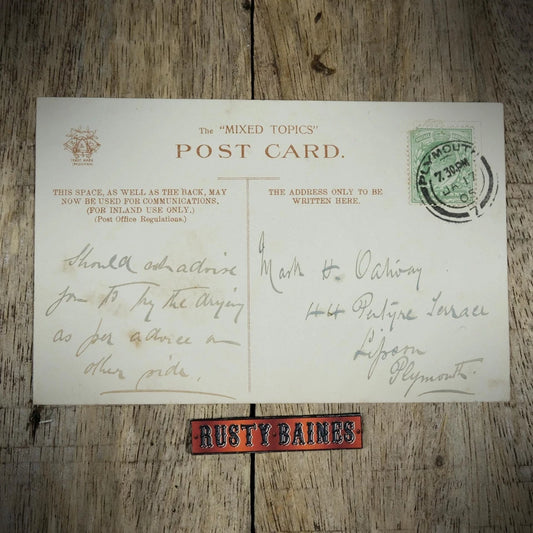 The "MIXED TOPICS"
POST CARD.
TRADE MARK
THIS SPACE, AS WELL AS THE BACK, MAY
NOW BE USED FOR COMMUNICATIONS.
(FOR INLAND USE ONLY.)
(Post Office Regulations.)
THE ADDRESS ONLY TO BE
WRITTEN HERE.
PLYMOUTH
7.30PM
17
05
Should advise
you to try the drying
as per advice on
other side.
Mark H. Oatway
44 Pentyre Terrace
Lipson
Plymouth
RUSTY BAINES